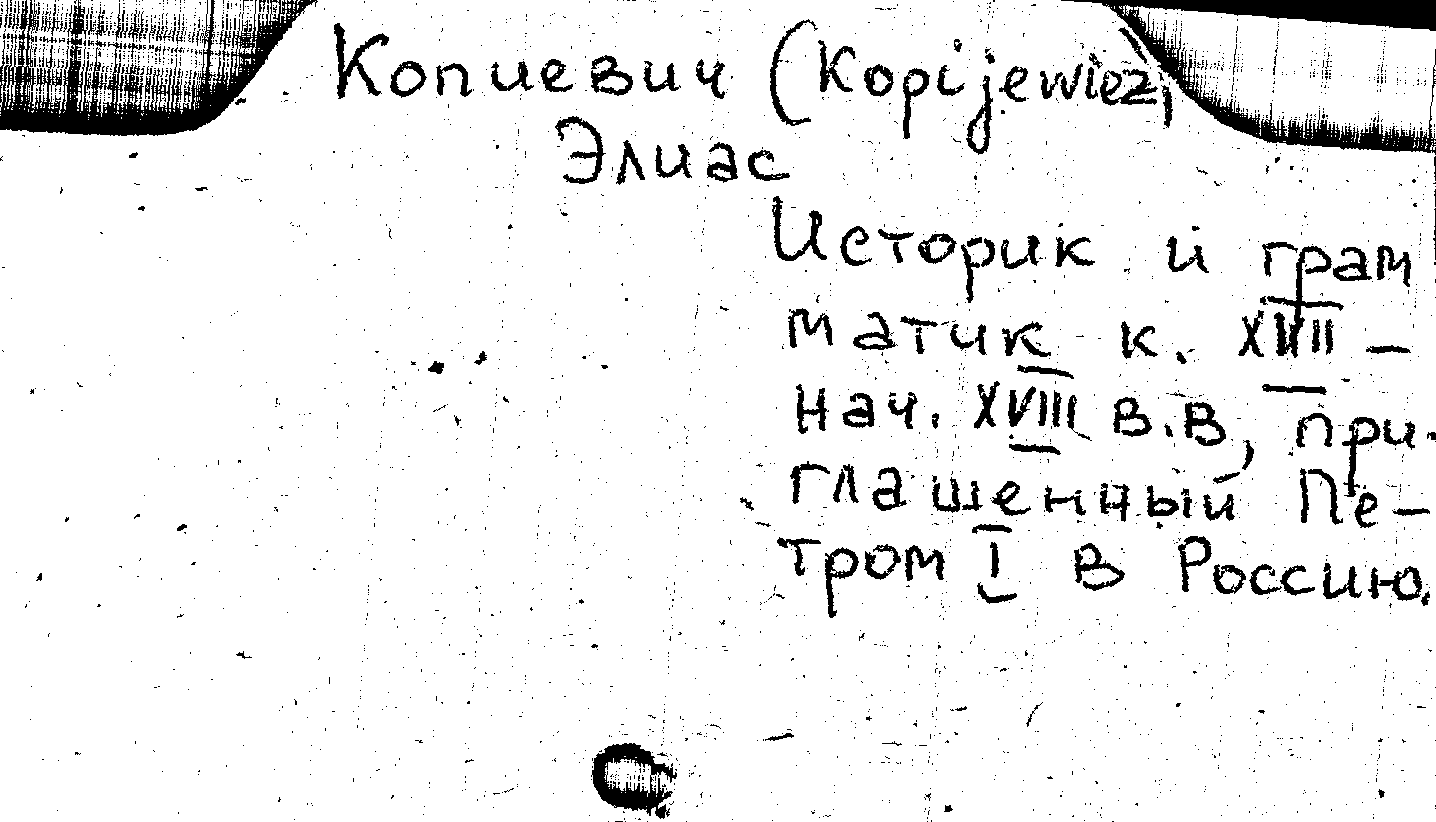 Копиевич (Kopijewicz,
Элиас
Историк и грам
матик к. XVII –
нач. XVIII в.в, при-
глашенный Пе-
тром I в Россию.